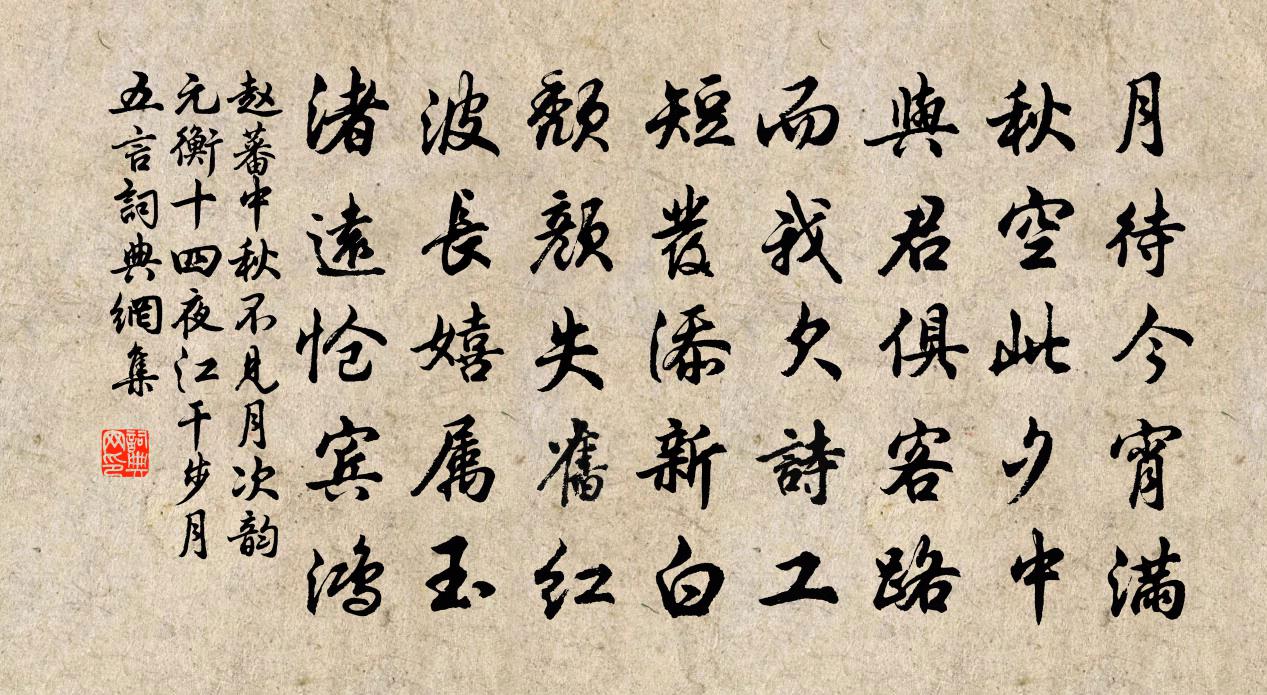 月待今宵满
秋空此夕中
與君俱客路
而我欠詩工
短發添新白
颓颜失舊红
波長嬉属玉
渚遠怆宾鸿
赵蕃中秋不見月次韵
元衡十四夜江干步月
五言詞典網集
詞典网印